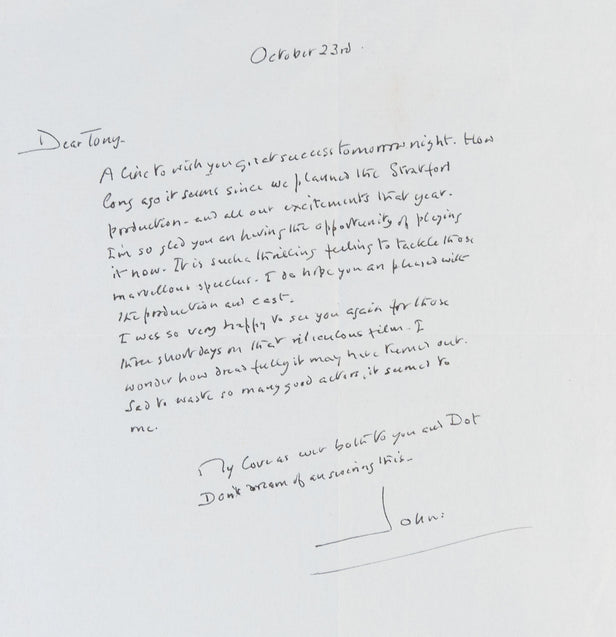 October 23rd.
Dear Tony-
A line to wish you great success tomorrow night. How
long ago it seems since we planned the Stratford
production- and all our excitements that year.
I'm so glad you are having the opportunity of playing
it now. It is such a thrilling feeling to tackle those
marvellous speeches. I do hope you are pleased with
the production and cast.
I was so very happy to see you again for those
three short days on that ridiculous film. I
wonder how dreadfully it may have turned out.
Sad to waste so many good actors, it seemed to
me.
My love as ever both to you and Dot
Don't dream of answering this-
John.